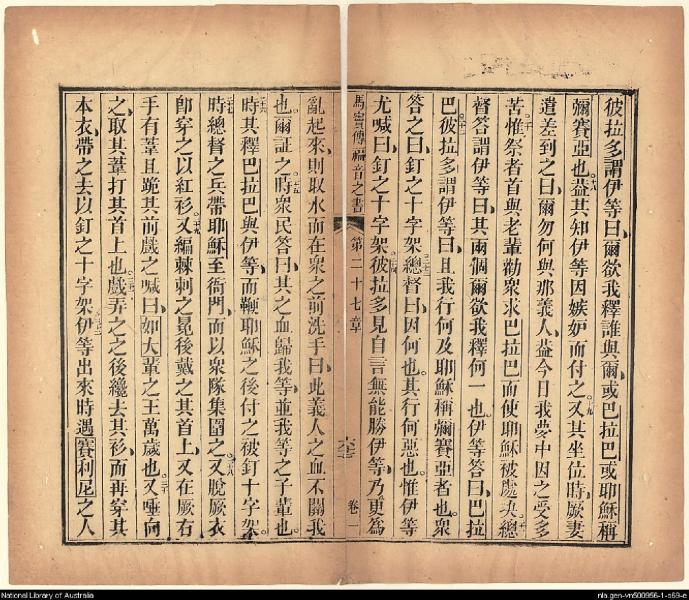 彼拉多謂伊等曰爾欲我釋誰與爾或巴拉巴或耶穌稱
彌賽亞也益其知伊等因嫉妒而付之又其坐位時厥妻
遣差到之曰爾勿何與那義人益今日我夢中因之受多
苦惟祭者首與老輩勸眾求巴拉巴而使耶穌被處死總
督答謂伊等曰其兩個爾欲我釋何一也伊等答曰巴拉
巴彼拉多謂伊等曰且我行何及耶穌稱彌賽亞者也眾
答之曰釘之十字架總督曰因何也其行何惡也惟伊等
尤喊曰釘之十字架彼拉多見自言無能勝伊等乃更為
馬竇傳福音之書 第二十七章 卷一
亂起來則取水而在眾之前洗手曰此義人之血不關我
也爾証之時眾民答曰其之血歸我等並我等之子輩也
時其釋巴拉巴與伊等而鞭耶穌之後付之被釘十字架
時總督之兵帶耶穌至衙門而以眾隊集圍之又脫厥衣
即穿之以紅衫又編棘刺之冕後戴之其首上又在厥右
手有葦且跪其前戲之喊曰如大輩之王萬歲也又唾向
之取其葦打其首上也戲弄之之後纔去其衫而再穿其
本衣帶之去以釘之十字架伊等出來時遇賽利尼之人
National Library of Australia
nla.gen-vn500956-1-s69-e